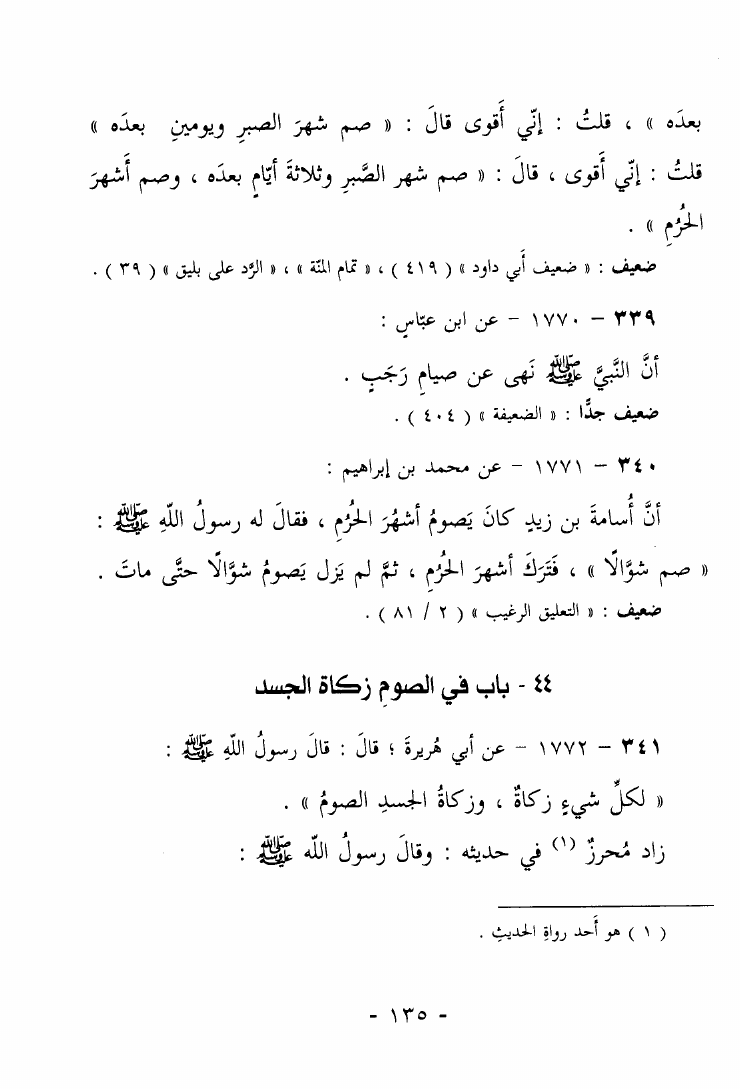 بعدَه » ، قلتُ : إنّي أَقوى قالَ : « صم شهرَ الصبرِ ويومينِ بعدَه »
قلتُ : إنّي أَقوى ، قالَ : « صم شهر الصَّبرِ وثلاثةَ أيّامٍ بعدَه ، وصم أَشهرَ
الحُرُمِ » .
ضعيف : « ضعيف أبي داود » ( ٤١٩ ) ، « تمام المنّة » ، « الرَّد على بليق » ( ٣٩ ) .
٣٣٩ – ١٧٧٠ – عن ابن عبّاسٍ :
أنَّ النَّبيَّ ﷺ نَهى عن صيامِ رَجَبٍ .
ضعيف جدًّا : « الضعيفة » ( ٤٠٤ ) .
٣٤٠ – ١٧٧١ – عن محمد بن إبراهيم :
أنَّ أُسامةَ بن زيدٍ كانَ يَصومُ أشهُرَ الحُرُمِ ، فقالَ له رسولُ اللّهِ ﷺ :
« صم شوَّالًا » ، فَتَرَكَ أشهرَ الحُرُمِ ، ثمَّ لم يَزل يَصومُ شوَّالًا حتَّى ماتَ .
ضعيف : « التعليق الرغيب » ( ٢ / ٨١ ) .
٤٤ - باب في الصومِ زكاة الجسد
٣٤١ – ١٧٧٢ – عن أبي هُريرةَ ؛ قالَ : قالَ رسولُ اللّهِ ﷺ :
« لكلِّ شيءٍ زكاةٌ ، وزكاةُ الجسدِ الصومُ » .
زاد مُحرزٌ (١) في حديثه : وقالَ رسولُ اللّه ﷺ :
( ١ ) هو أَحد رواةِ الحديثِ .
- ١٣٥ -